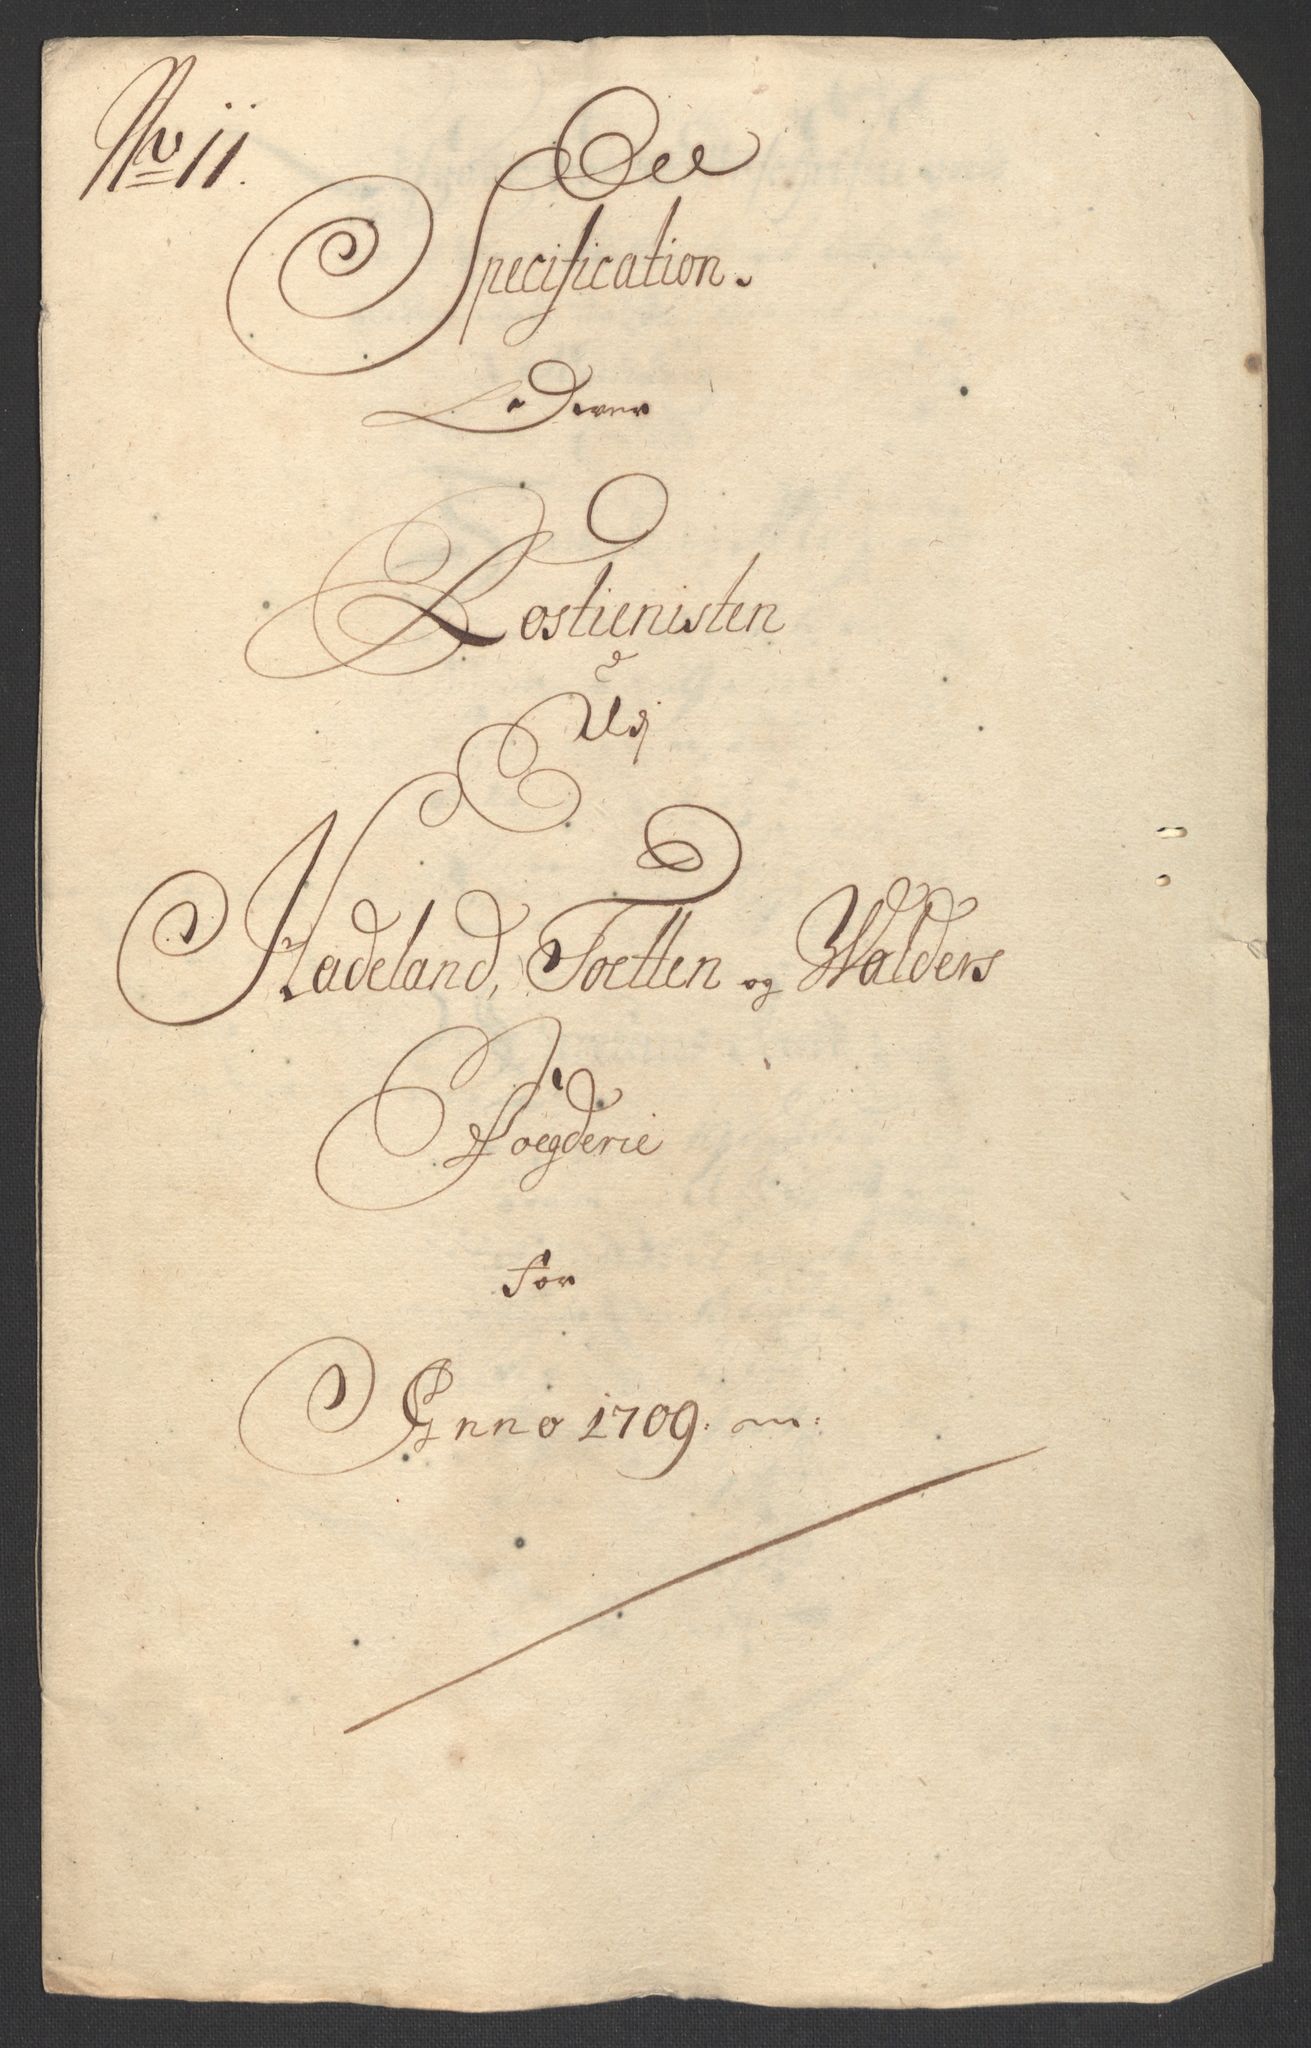 No 11.
Een
Specification.
Over
Rostienisten
Udj
Hadeland, Toetten og Walders
Foegderie
for
Anno 1709.